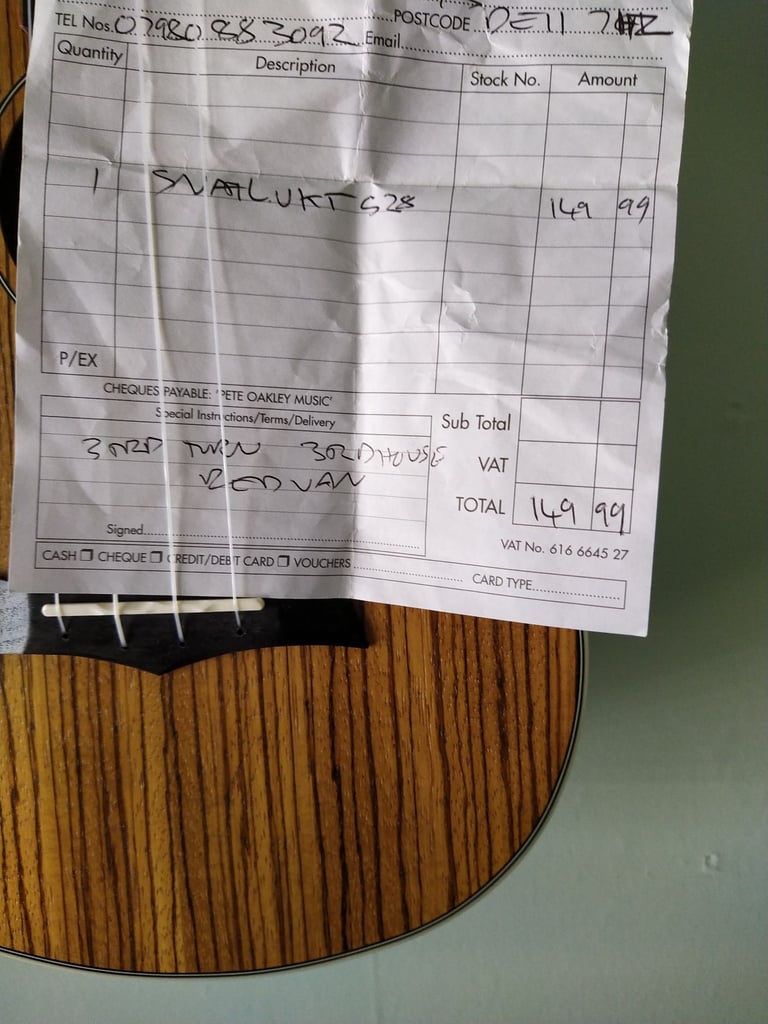 TEL Nos. 07980 883092 Email POSTCODE DE11 7HZ
Quantity Description Stock No. Amount
1 SNAILUKE S28 149 99
P/EX
CHEQUES PAYABLE: 'PETE OAKLEY MUSIC'
Special Instructions/Terms/Delivery
3RD TURN 3RD HOUSE
RED VAN
Signed
Sub Total
VAT
TOTAL 149 99
VAT No. 616 6645 27
CASH CHEQUE CREDIT/DEBIT CARD VOUCHERS CARD TYPE